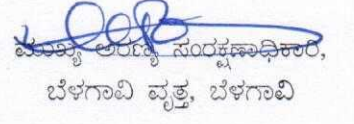 ಮುಖ್ಯ ಅರಣ್ಯ ಸಂರಕ್ಷಣಾಧಿಕಾರಿ,
ಬೆಳಗಾವಿ ವೃತ್ತ, ಬೆಳಗಾವಿ